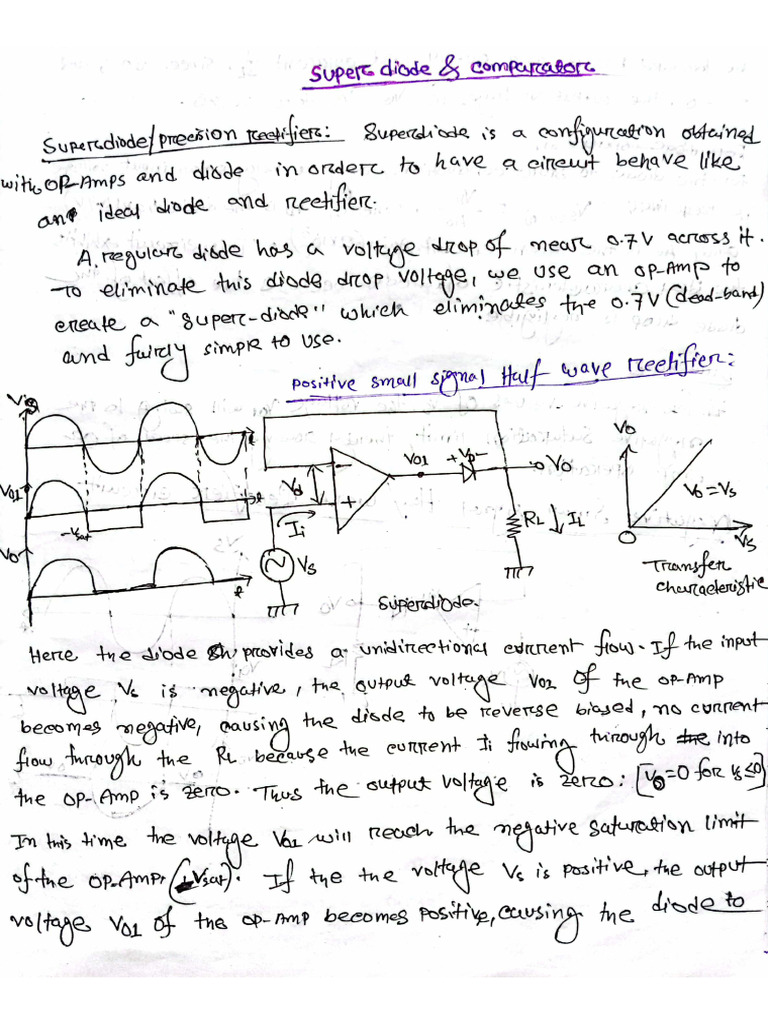 Superc diode & comparatorc
Superdiode/precision rectifiers: Superdiode is a configuration obtained
with OP-Amps and diode in orderc to have a circuit behave like
an ideal diode and rectifier.
A regular diode has a voltage drop of near 0.7V across it.
To eliminate this diode drop voltage, we use an op-Amp to
create a "superc-diode" which eliminates the 0.7V (dead-band)
and fairly simple to use.
positive small signal Half wave rectifier:
Vs
t
V01
t
-Vsat
Vo
t
Vd
-
+
Ii
Vs
V01
+VD-
Vo
RL
IL
Superdiode.
Vo
Vo=Vs
O
Vs
Transfer
characteristic
Here the diode provides a unidirectional current flow. If the input
voltage Vs is negative, the output voltage V02 of the op-Amp
becomes negative, causing the diode to be reverse biased, no current
flow through the RL because the current Ii flowing through into
the op-Amp is zero. Thus the output voltage is zero: [Vo=0 for Vs≤0]
In this time the voltage V01 will reach the negative saturation limit
of the OP-Amp, (-Vsat). If the the voltage Vs is positive, the output
voltage V01 of the op-Amp becomes positive, causing the diode to